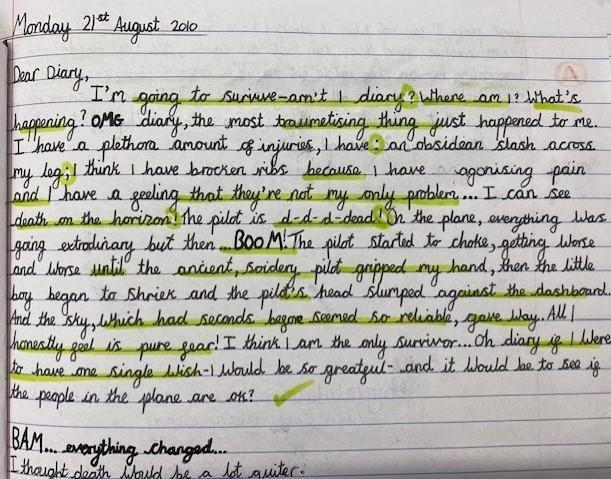 Monday 21st August 2010
Dear Diary,
I'm going to survive-arn't I diary? Where am I? What's
happening? OMG diary, the most traumetising thing just happened to me.
I have a plethora amount of injuries, I have: an obsidean slash across
my leg; I think I have brocken ribs because I have agonising pain
and I have a feeling that they're not my only problem... I can see
death on the horizon! The pilot is d-d-d-dead! On the plane, everything was
going extrodinary but then ...BOOM! The pilot started to choke, getting worse
and worse until the ancient, soidery pilot gripped my hand, then the little
boy began to shriek and the pilot's head slumped against the dashboard.
And the sky, which had seconds before seemed so reliable, gave way. All I
honestly feel is pure fear! I think I am the only survivor... Oh diary if I were
to have one single wish-I would be so greatful- and it would be to see if
the people in the plane are ok?
BAM... everything changed...
I thought death would be a lot quiter.